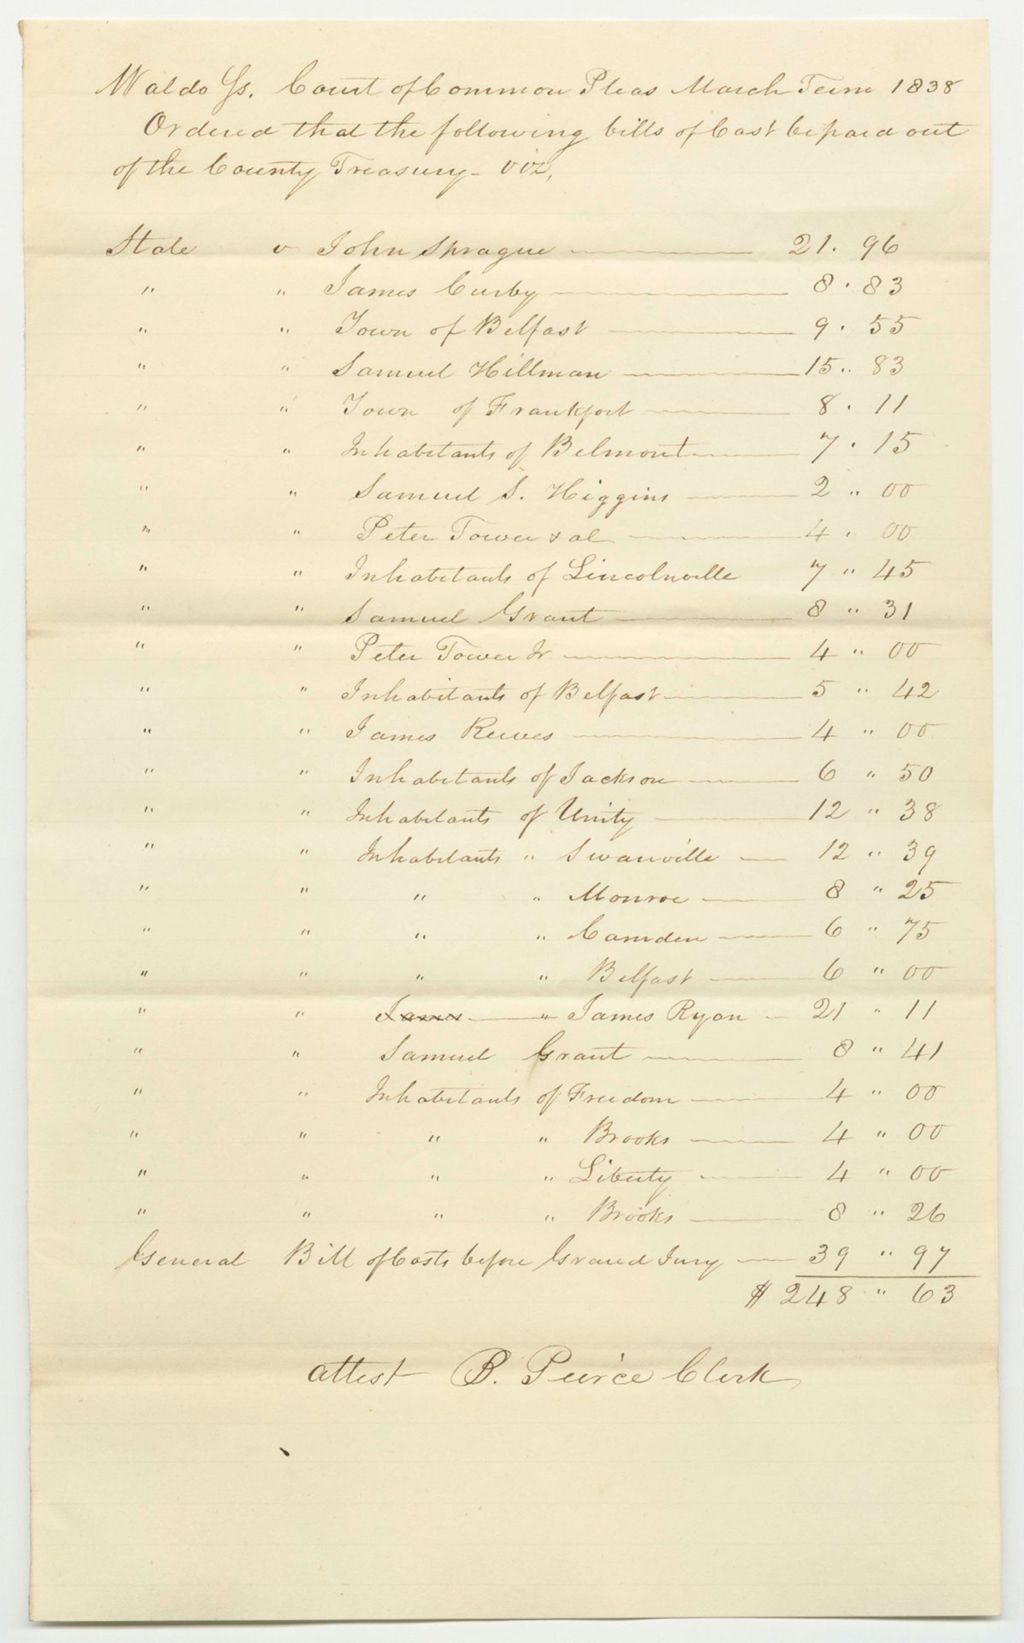 Waldo Ss. Court of Common Pleas March Term 1838
Ordered that the following bills of Cost be paid out
of the County Treasury - viz,
State v John Sprague 21. 96
" " James Curby 8. 83
" " Town of Belfast 9. 55
" " Samuel Hillman 15.. 83
" " Town of Frankfort 8. 11
" " Inhabitants of Belmont 7. 15
" " Samuel S. Higgins 2 " 00
" " Peter Tower & al 4 " 00
" " Inhabitants of Lincolnville 7 " 45
" " Samuel Grant 8 " 31
" " Peter Tower Jr 4 " 00
" " Inhabitants of Belfast 5 " 42
" " James Reeves 4 " 00
" " Inhabitants of Jackson 6 " 50
" " Inhabitants of Unity 12 " 38
" " Inhabitants " Swanville 12 " 39
" " " " Monroe 8 " 25
" " " " Camden 6 " 75
" " " " Belfast 6 " 00
" " James " James Ryan 21 " 11
" " Samuel Grant 8 " 41
" " Inhabitants of Freedom 4 " 00
" " " " Brooks 4 " 00
" " " " Liberty 4 " 00
" " " " Brooks 8 " 26
General Bill of Costs before Grand Jury 39 " 97
$ 248 " 63
attest B. Peirce Clerk